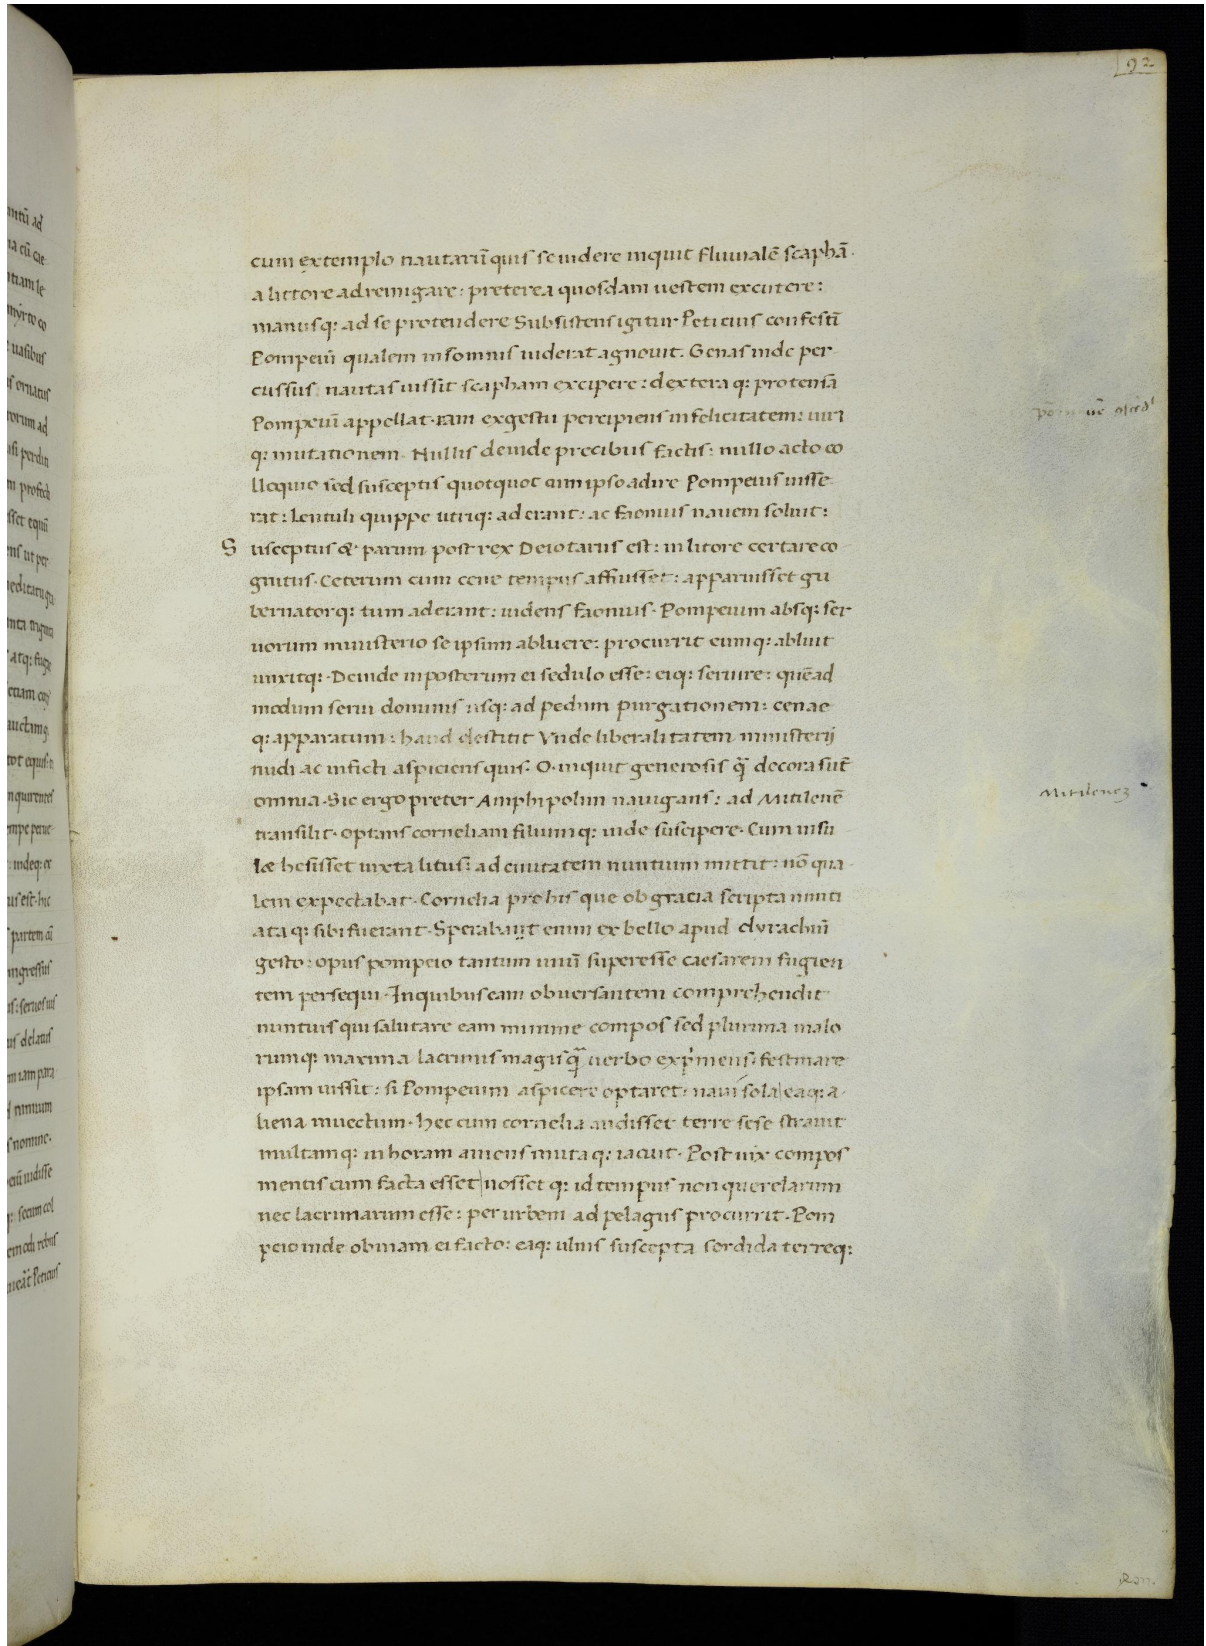 92
cum extemplo nautarū quis se uidere inquit fluuialē scaphā·
a littore adremigare: preterea quosdam uestem excutere:
manusq: ad se protendere Subsistens igitur Peticius confestī
Pompeiū qualem in somnis uiderat agnouit. Genas inde per
cussus nautas iussit scapham excipere: dextera q: protensā
Pompeiū appellat· iam ex gestu percipiens infelicitatem: uiri
q: mutationem· Nullis deinde precibus factis: nullo acto co
lloquio sed susceptis quotquot cum ipso adire Pompeius iusse
rat: Lentuli quippe utriq: aderant: ac faonius nauem soluit:
Susceptus & parum post rex Deiotarus est: in litore certare co
gnitus· Ceterum cum cene tempus affuisset: apparuisset gu
bernatorq: tum aderant: uidens faonius· Pompeium absq: ser
uorum ministerio se ipsum abluere: procurrit eumq: abluit
unxitq:· Deinde in posterum ei sedulo esse: eiq: seruire: quēad
modum serui dominis usq: ad pedum purgationem: cenae
q: apparatum: haud destitit Vnde liberalitatem ministerij
nudi ac inficti aspiciens quis· O· inquit generosis q̄ decora sūt
omnia· Sic ergo preter Amphipolim nauigans: ad Mitilenē
transilit· optans corneliam filiumq: inde suscipere· Cum insu
læ hesisset iuxta litus: ad ciuitatem nuntium mittit: nō qua
lem expectabat· Cornelia pre his que ob gracia scripta nunti
ata q: sibi fuerant· Sperabant enim ex bello apud dyrachiū
gesto: opus pompeio tantum unū superesse caesarem fugien
tem persequi· In quibus eam obuersantem comprehendit
nuntius qui salutare eam minime compos sed plurima malo
rumq: maxima lacrimis magis q̄ uerbo exprimens: festinare
ipsam iussit: si Pompeium aspicere optaret: naui sola eaq: a
liena inuectum· hec cum cornelia audisset terre sese strauit
multamq: in horam amens muta q: iacuit· Post uix compos
mentis cum facta esset nosset q: id tempus non querelarum
nec lacrimarum esse: per urbem ad pelagus procurrit· Pom
peio inde obuiam ei facto: eaq: ulnis suscepta sordida terreq:
Mitilenez